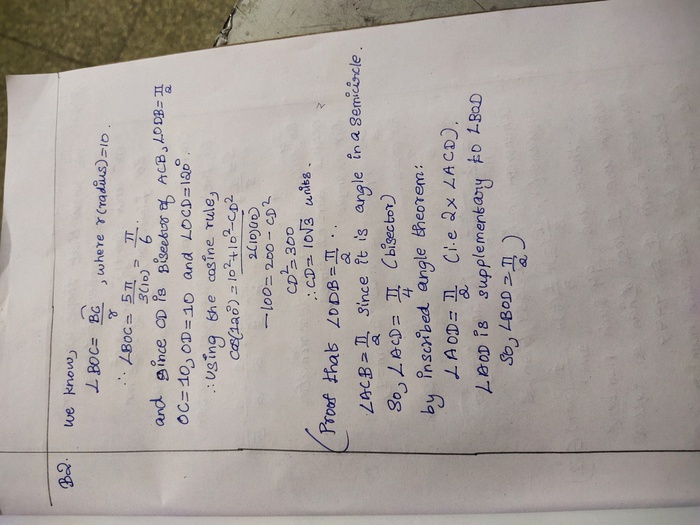 B2. we know,
∠BOC = BC/r , where r(radius)=10.
∴ ∠BOC = 5π/3(10) = π/6.
and since CD is Bisector of ACB, ∠ODB = π/2
OC=10, OD=10 and ∠OCD=120°.
∴ Using the cosine rule,
cos(120°) = 10²+10²-CD²/2(10)(10)
-100 = 200 - CD²
CD² = 300
∴ CD = 10√3 units.
(Proof that ∠ODB = π/2 ..
∠ACB = π/2 since it is angle in a semicircle.
So, ∠ACD = π/4 (bisector)
by inscribed angle theorem:
∠AOD = π/2 (i.e 2x ∠ACD).
∠AOD is supplementary to ∠BOD
So, ∠BOD = π/2 )